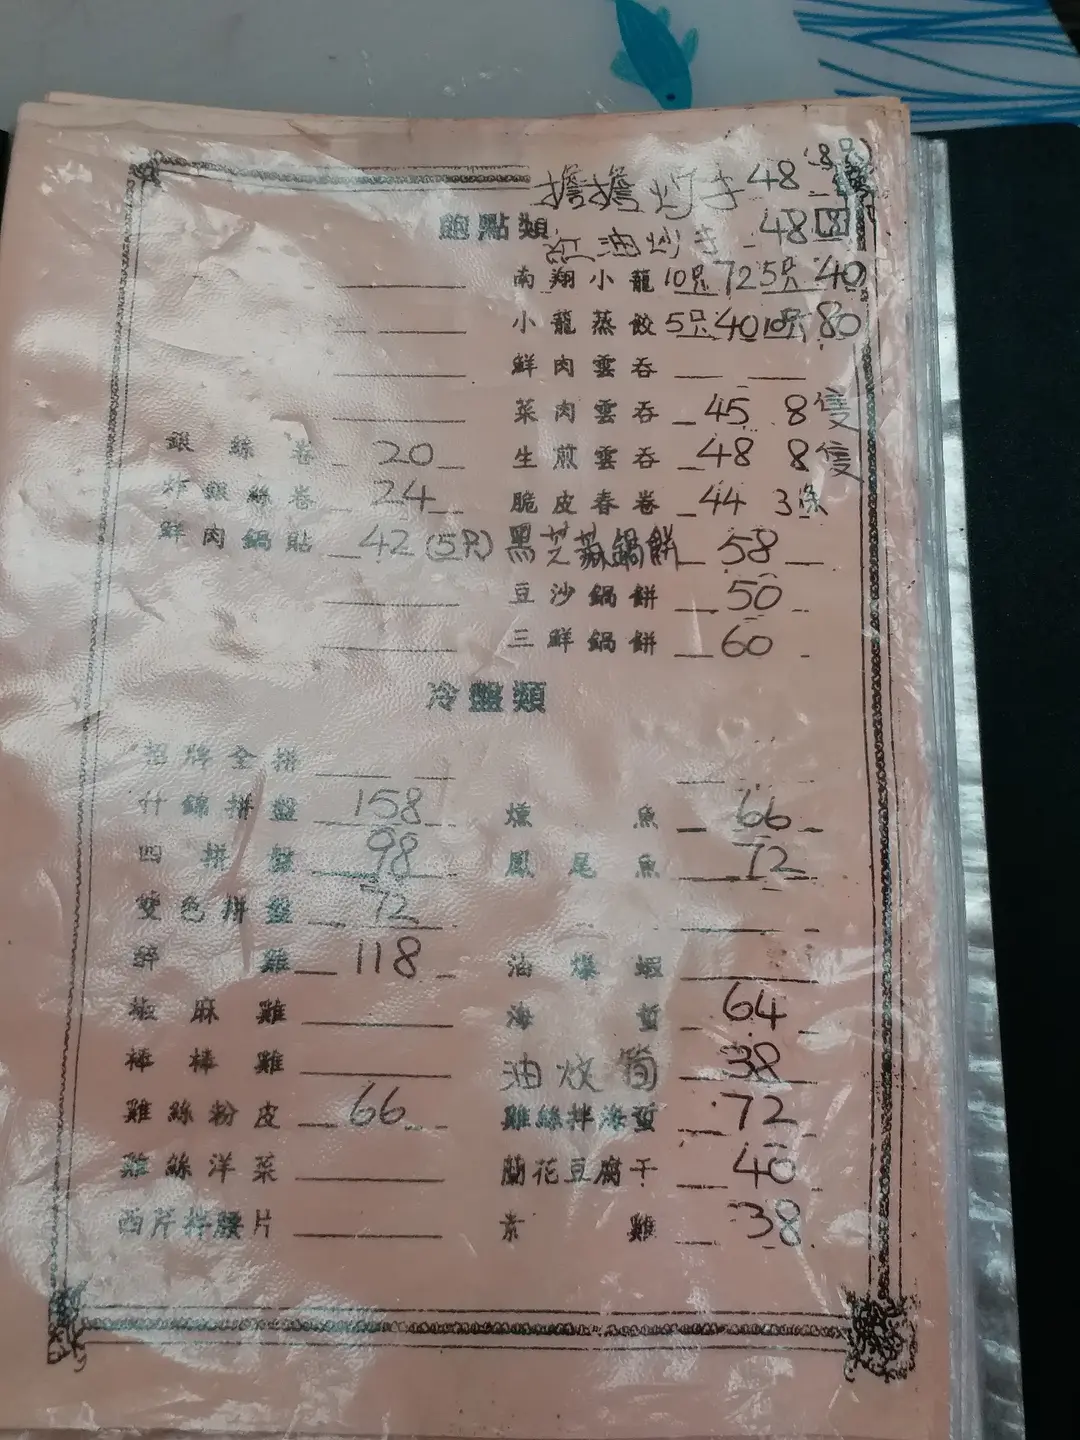 擔擔炒手 48 (8只)
飽點類
紅油炒手 48
南翔小龍 10只 72 5只 40
小龍蒸餃 5只 40 10只 80
鮮肉雲吞
菜肉雲吞 45 8隻
銀絲卷 20 生煎雲吞 48 8隻
炸銀絲卷 24 脆皮春卷 44 3条
鮮肉鍋貼 42 (5只) 黑芝蔴鍋餅 58
豆沙鍋餅 50
三鮮鍋餅 60
冷盤類
招牌全拼
什錦拼盤 158 燻魚 66
四拼盤 98 鳳尾魚 72
雙色拼盤 72
醉雞 118 油爆蝦
椒麻雞 海蜇 64
棒棒雞 油炆筍 38
雞絲粉皮 66 雞絲拌海蜇 72
雞絲洋菜 蘭花豆腐干 40
西芹拌腰片 素雞 38